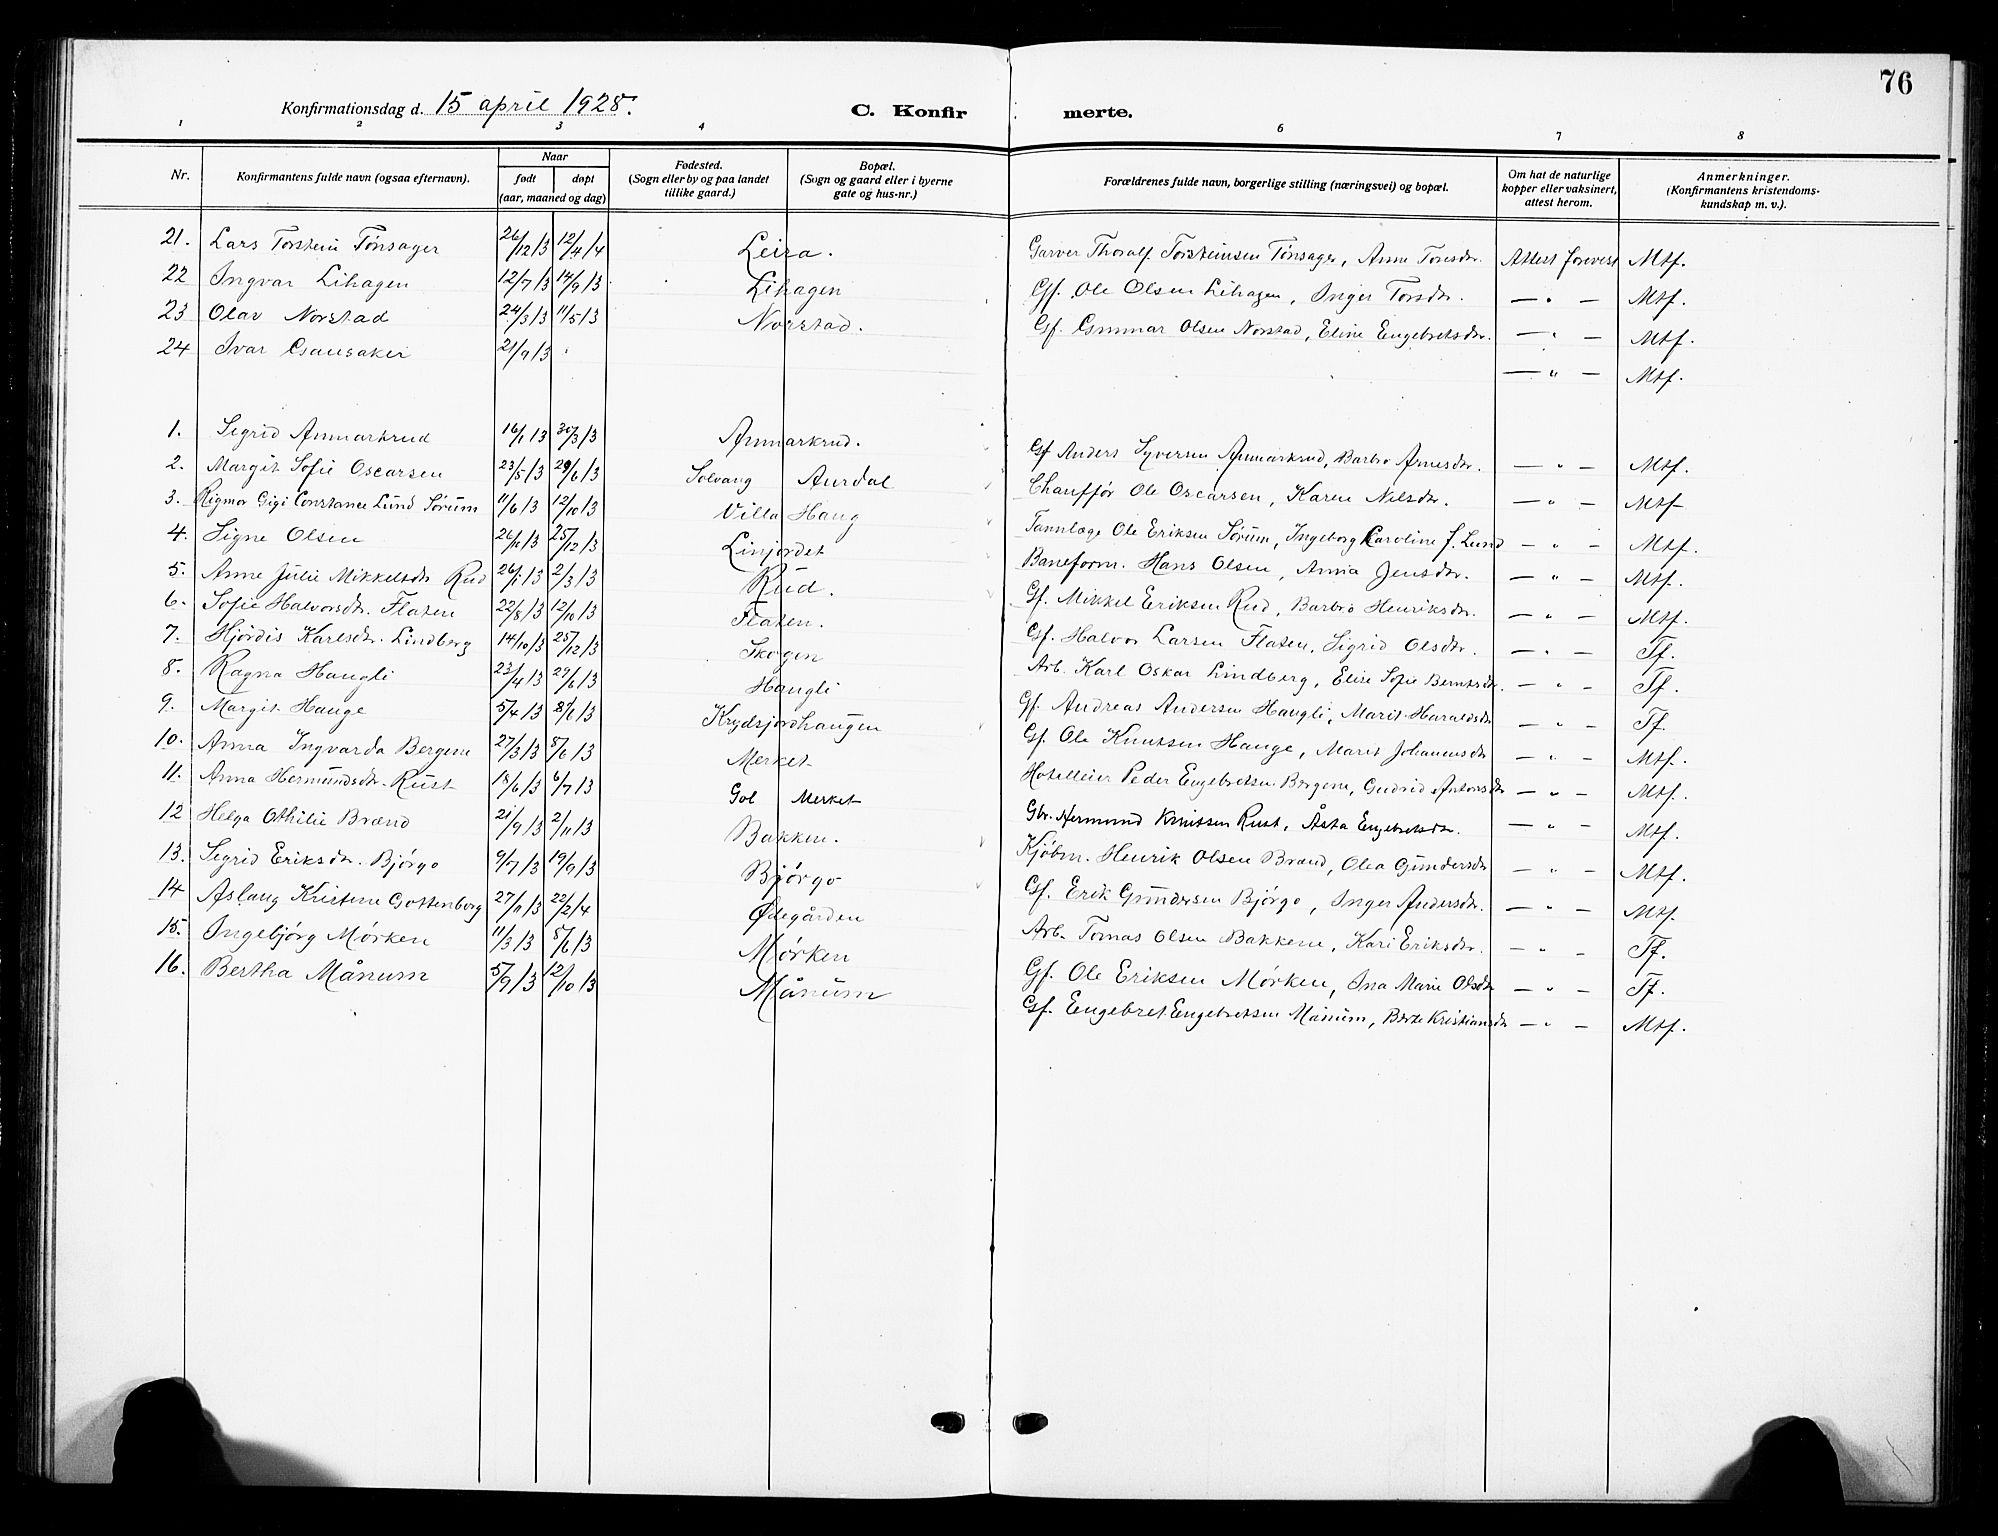 76
Konfirmationsdag d. 15 april 1928. C. Konfir merte.
1 2 3 4 6 7 8
Nr. Konfirmantens fulde navn (ogsaa efternavn). Naar født døpt (aar, maaned og dag) Fødested. (Sogn eller by og paa landet tillike gaard.) Bopæl. (Sogn og gaard eller i byerne gate og hus-nr.) Forældrenes fulde navn, borgerlige stilling (næringsvei) og bopæl. Om hat de naturlige kopper eller vaksinert, attest herom. Anmerkninger. (Konfirmantens kristendoms-kundskap m. v.).
21. Lars Torstein Tönsager 26/12 13 12/4 14 Leira. Garver Thoralf Torsteinsen Tönsager, Anne Torsdtr. Attest forevist Mtf.
22 Ingvar Lihagen 12/7 13 14/9 13 Lihagen Gf. Ole Olsen Lihagen, Inger Torsdtr. — " — Mtf.
23 Olav Norstad 24/3 13 11/5 13 Norstad. Gf. Gunnar Olsen Norstad, Eline Engebretsdtr. — " — Mtf.
24 Ivar 21/9 13 — " — Mtf.
1. Sigrid Anmarkrud 16/1 13 30/3 13 Anmarkrud. Gf Anders Syversen Anmarkrud, Barbro Arnesdtr. — " — Mtf.
2. Margit Sofie Oscarsen 23/5 13 29/6 13 Solvang Aurdal Chauffør Ole Oscarsen, Karen Nilsdtr. — " — Mtf
3. Rigmor Gigi Constance Lund Sörum 11/6 13 12/10 13 Villa Haug Tannlæge Ole Eriksen Sörum, Ingeborg Caroline f. Lund — " — Mtf.
4. Signe Olsen 26/11 13 25/12 13 Linjordet Baneform. Hans Olsen, Anna Jensdtr. — " — Mtf.
5. Anne Julie Mikkelsdtr Rud 26/1 13 2/3 13 Rud. Gf. Mikkel Eriksen Rud, Barbro Henriksdtr. — " — Mtf.
6. Sofie Halvorsdtr. Flaten 22/8 13 12/10 13 Flaten. Gf. Halvor Larsen Flaten, Sigrid Olsdtr. — " — Tf.
7. Hjördis Karlsdtr. Lindberg 14/10 13 25/12 13 Skogen Arb. Karl Oskar Lindberg, Elise Sofie Berntsdtr. — " — Tf.
8. Ragna Haugli 23/4 13 29/6 13 Haugli Gf. Andreas Andersen Haugli, Marit Haraldsdtr — " — Tf.
9. Margit Hauge 5/4 13 8/6 13 Krydsjordhaugen Gf. Ole Knutsen Hauge, Marit Johannesdtr — " — Mtf.
10. Anna Ingvarda Bergene 27/3 13 8/6 13 Merket Hotelleier Peder Engebretsen Bergene, Gudrid Antonsdtr — " — Mtf.
11. Anna Hermundsdtr. Rust 18/6 13 6/7 13 Gol Merket Gbr. Hermund Knutsen Rust, Åsta Engebretsdtr. — " — Mtf.
12 Helga Othilie Brænd 21/9 13 2/11 13 Bakken. Kjöbm. Henrik Olsen Brænd, Olea Gundersdtr — " — Mtf.
13. Sigrid Eriksdtr. Björgo 9/7 13 19/9 13 Björgo Gf. Erik Gundersen Björgo, Inger Andersdtr. — " — Mtf.
14 Aslaug Kristine Gottenborg 27/11 13 22/2 14 Ödegården Arb. Tomas Olsen Bakkene, Kari Eriksdtr. — " — Tf.
15. Ingebjörg Mörken 11/3 13 8/6 13 Mörken Gf. Ole Eriksen Mörken, Ina Marie Olsdtr — " — Tf.
16. Bertha Månum 5/9 13 12/10 13 Månum Gf. Engebret Engebretsen Månum, Berte Kristiansdtr — " — Mtf.